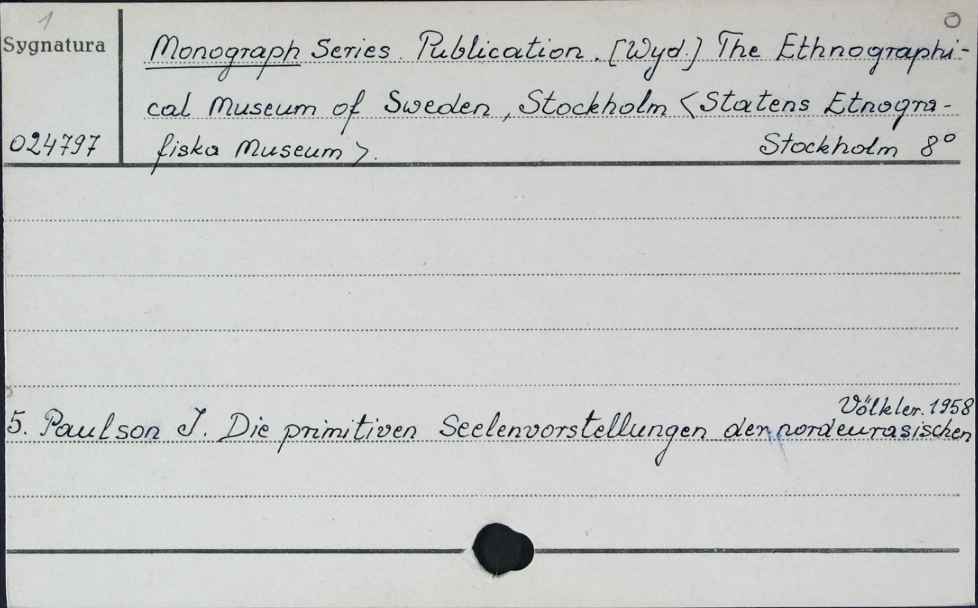 1
Sygnatura
Monograph Series. Publication. [Wyd.] The Ethnographi-
cal Museum of Sweden, Stockholm <Statens Etnogra-
024797
fiska Museum>. Stockholm 8°
Völkler. 1958
5. Paulson I. Die primitiven Seelenvorstellungen der nordeurasischen